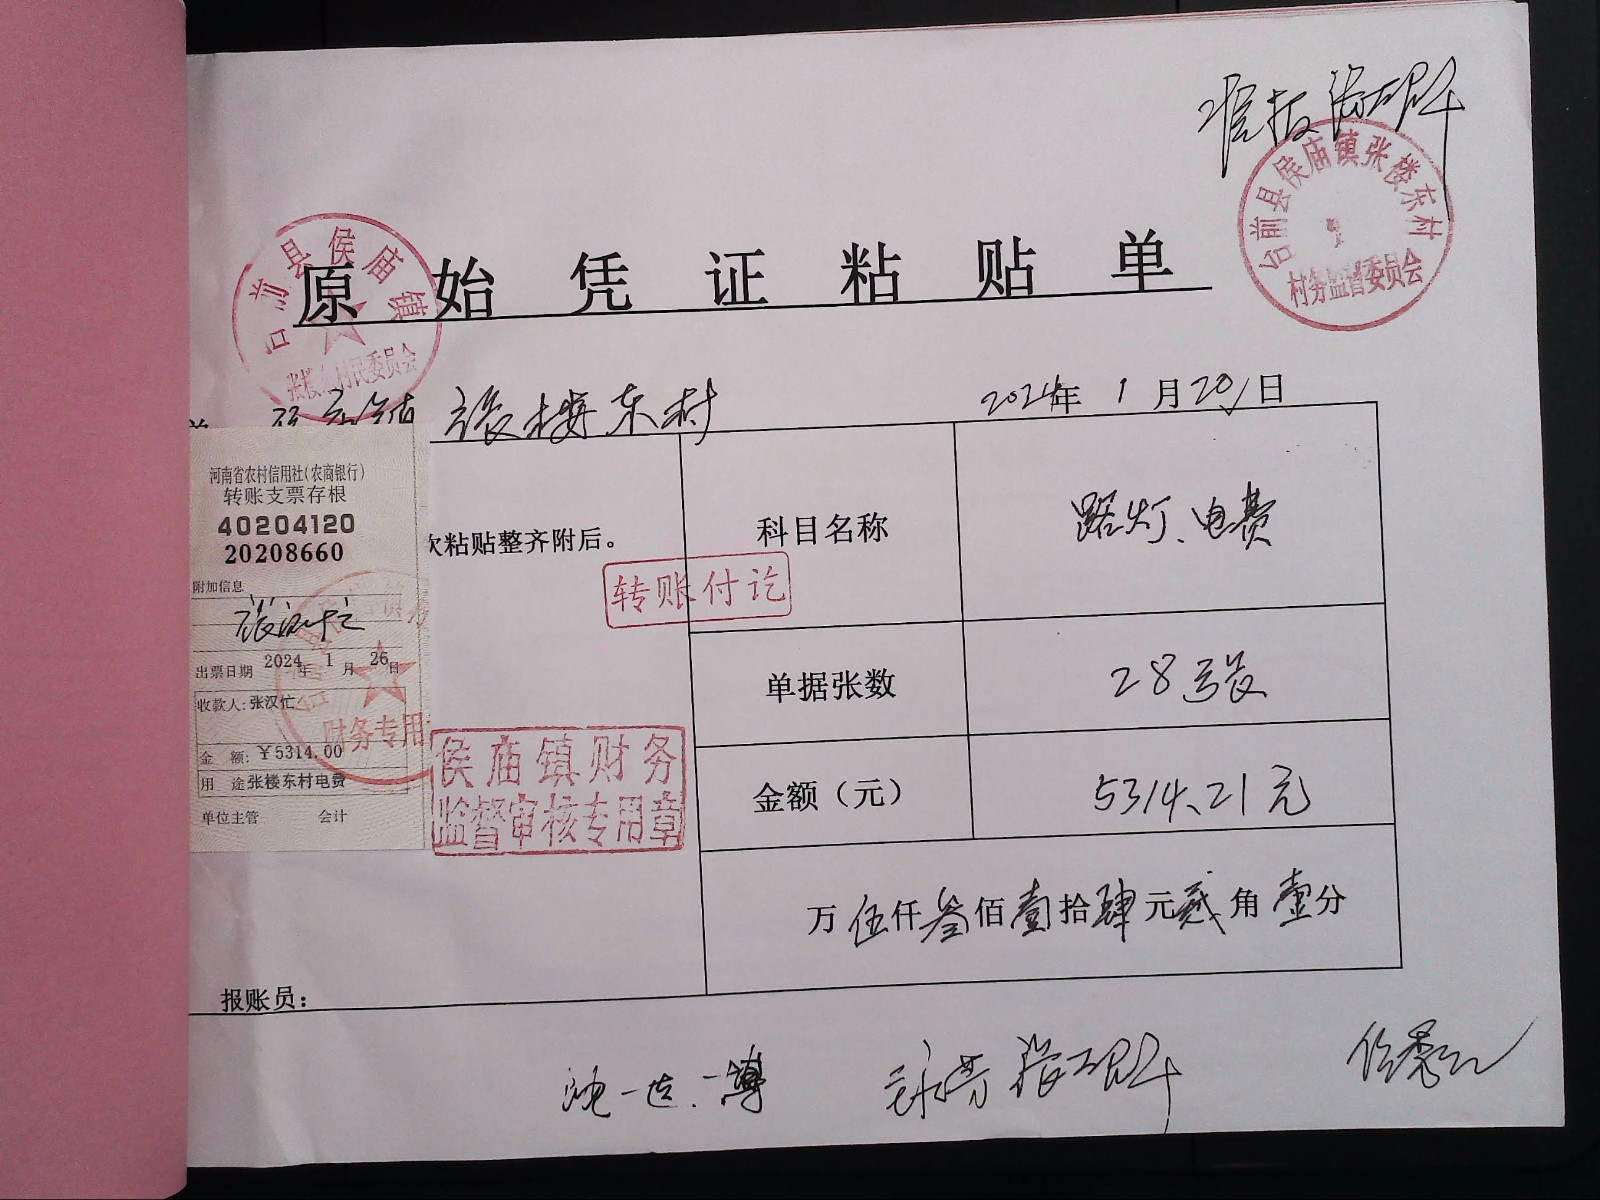 准报
台前县侯庙镇张楼东村
村务监督委员会
台前县侯庙镇
张楼东村民委员会
原始凭证粘贴单
张楼东村 2024年1月20日
次粘贴整齐附后。
科目名称 路灯、电费
转账付讫
单据张数 28张
金额（元） 5314.21元
万伍仟叁佰壹拾肆元贰角壹分
河南省农村信用社(农商银行)
转账支票存根
40204120
20208660
附加信息
张汉忙
出票日期 2024年 1月 26日
收款人:张汉忙
金 额:￥5314.00
用 途 张楼东村电费
单位主管 会计
财务专用
侯庙镇财务
监督审核专用章
报账员：